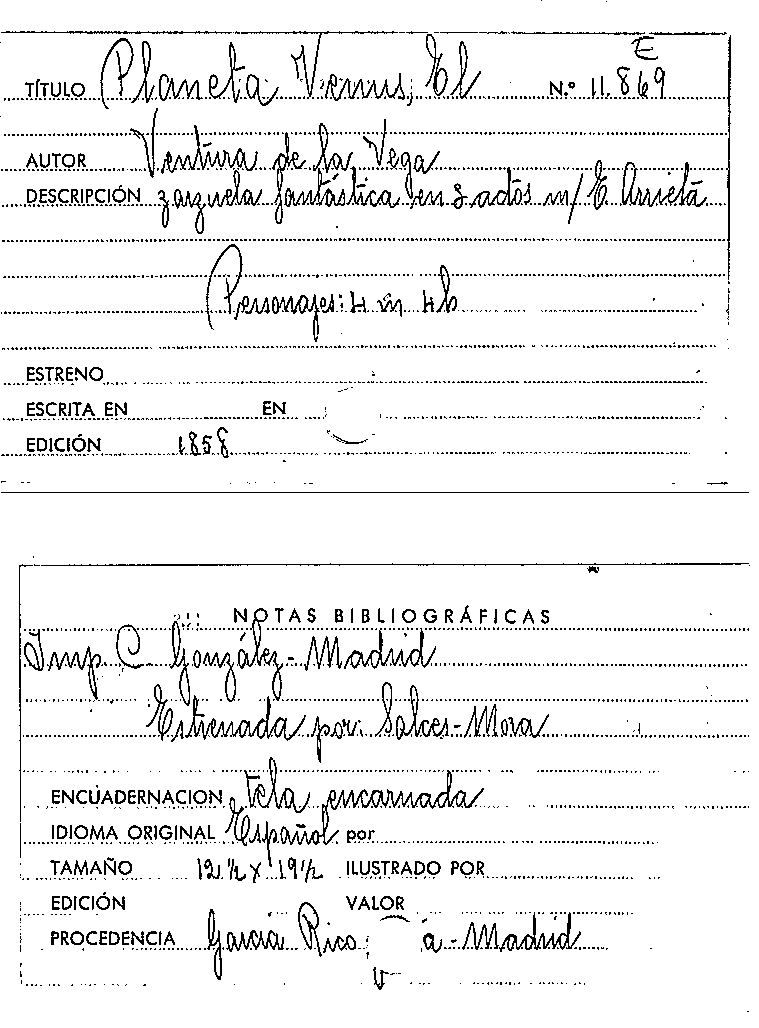 E
TÍTULO Planeta Venus, El N.º 11.869
AUTOR Ventura de la Vega
DESCRIPCIÓN zarzuela fantástica en 3 actos m/ E. Arrieta
Personajes: 4 m 4h
ESTRENO
ESCRITA EN EN
EDICIÓN 1858
NOTAS BIBLIOGRÁFICAS
Imp. C. González - Madrid
Estrenada por: Salces - Mora
ENCUADERNACION tela encarnada
IDIOMA ORIGINAL Español por
TAMAÑO 12 1/2 x 19 1/2 ILUSTRADO POR
EDICIÓN VALOR
PROCEDENCIA García Rico a - Madrid